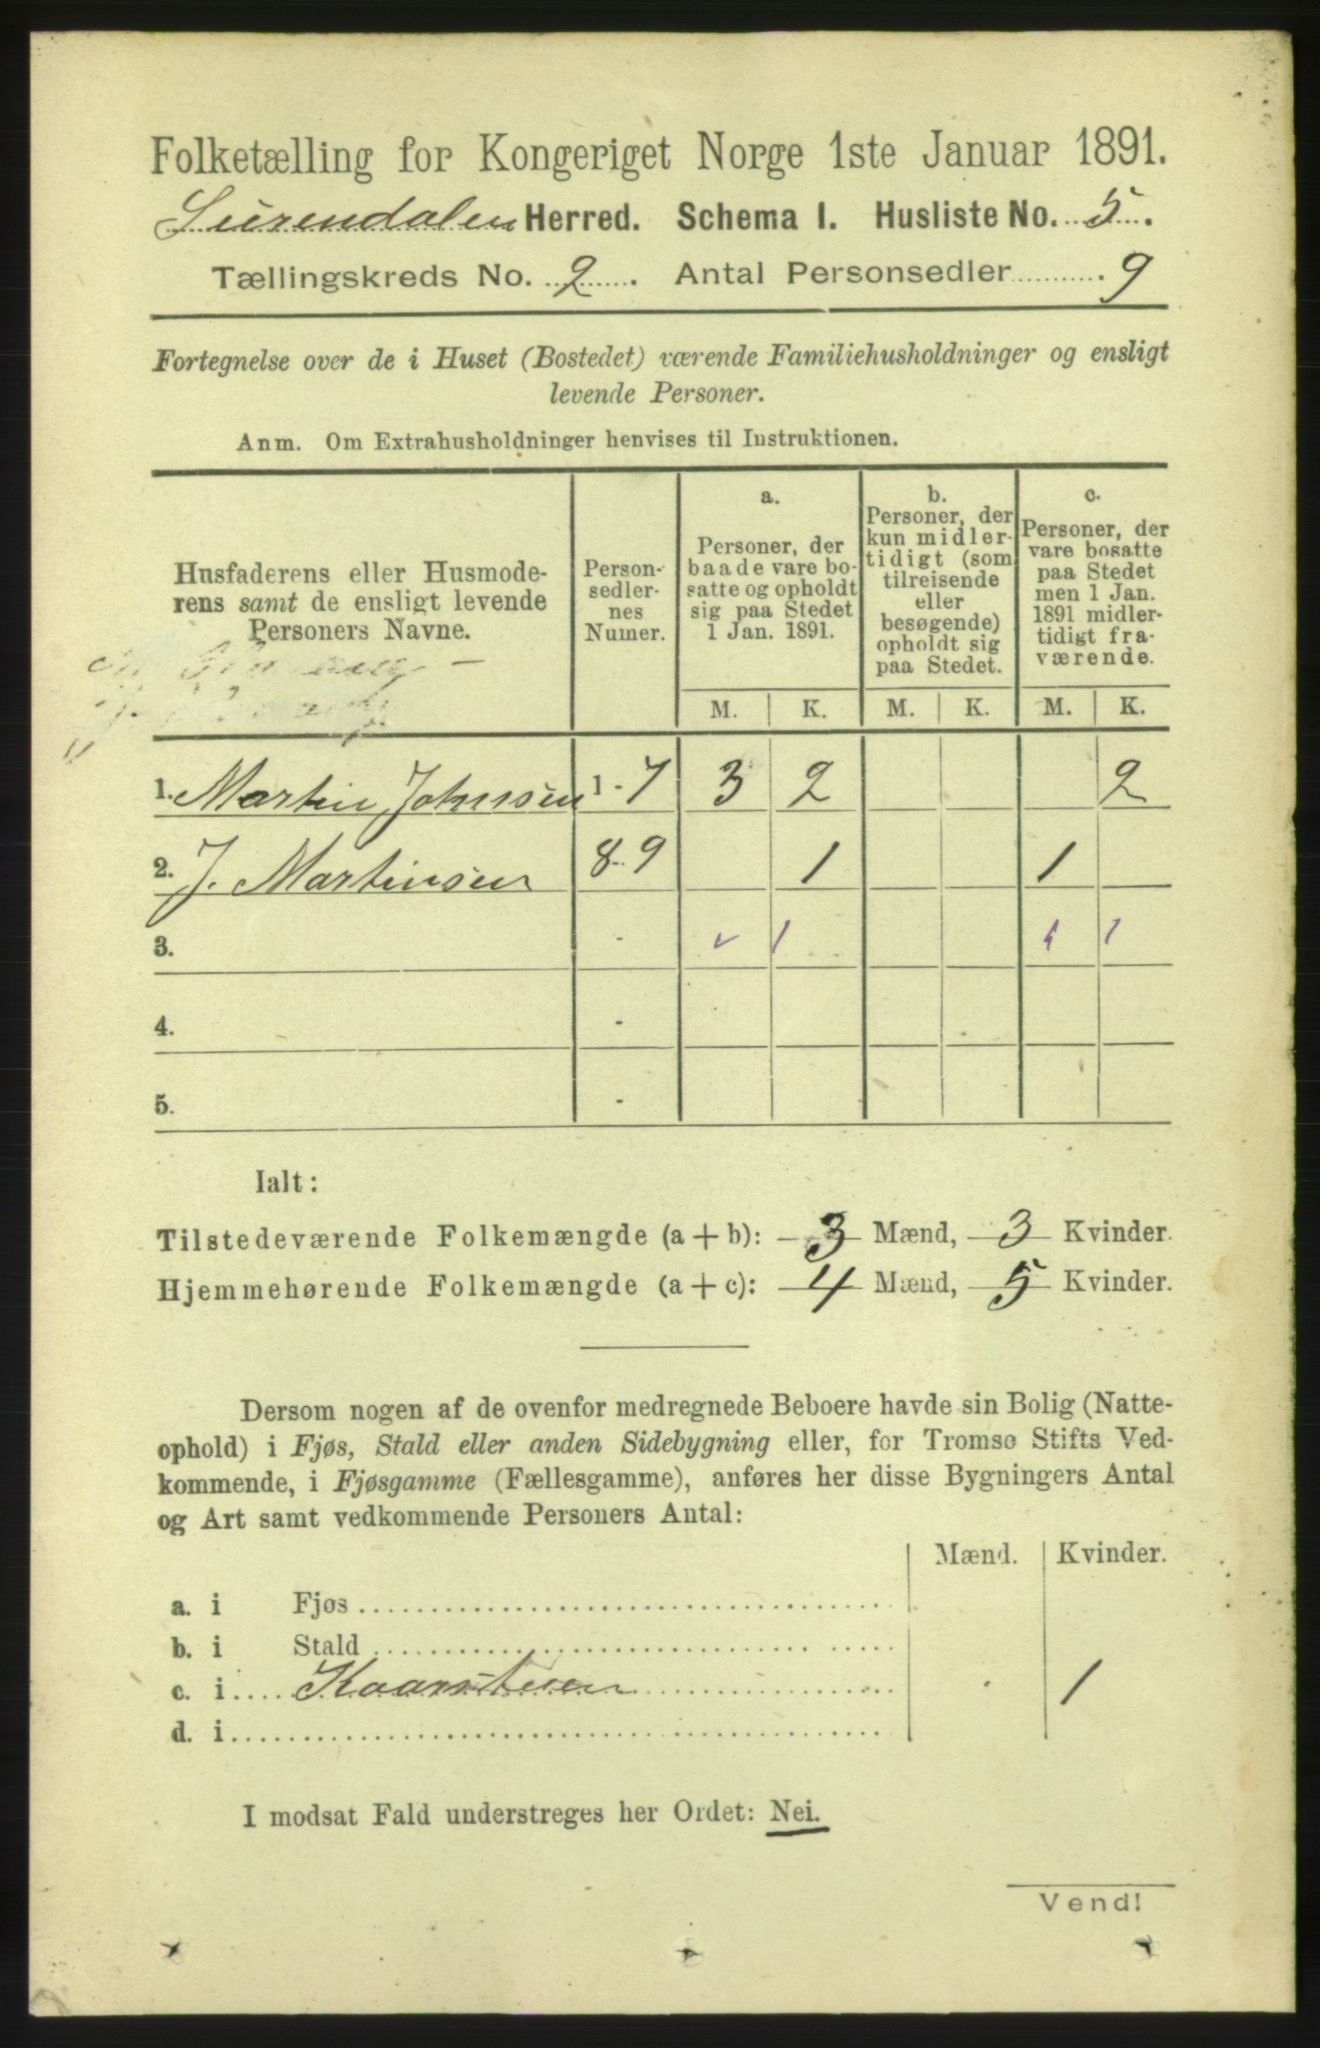 Folketælling for Kongeriget Norge 1ste Januar 1891.
Surendalen Herred. Schema I. Husliste No. 5.
Tællingskreds No. 2. Antal Personsedler 9
Fortegnelse over de i Huset (Bostedet) værende Familiehusholdninger og ensligt
levende Personer.
Anm. Om Extrahusholdninger henvises til Instruktionen.
Husfaderens eller Husmode-
rens samt de ensligt levende
Personers Navne.
Person-
sedler-
nes
Numer.
a.
Personer, der
baade vare bo-
satte og opholdt
sig paa Stedet
1 Jan. 1891.
b.
Personer, der
kun midler-
tidigt (som
tilreisende
eller
besøgende)
opholdt sig
paa Stedet.
c.
Personer, der
vare bosatte
paa Stedet
men 1 Jan.
1891 midler-
tidigt fra-
værende.
M. K. M. K. M. K.
1. Martin Johnsen 1-7 3 2 2
2. J. Martinsen 8-9 1 1
3. - 1 1
4. -
5. -
Ialt:
Tilstedeværende Folkemængde (a + b): 3 Mænd, 3 Kvinder.
Hjemmehørende Folkemængde (a + c): 4 Mænd, 5 Kvinder.
Dersom nogen af de ovenfor medregnede Beboere havde sin Bolig (Natte-
ophold) i Fjøs, Stald eller anden Sidebygning eller, for Tromsø Stifts Ved-
kommende, i Fjøsgamme (Fællesgamme), anføres her disse Bygningers Antal
og Art samt vedkommende Personers Antal:
Mænd. Kvinder.
a. i Fjøs
b. i Stald
c. i Kaarstuen 1
d. i
I modsat Fald understreges her Ordet: Nei.
Vend!